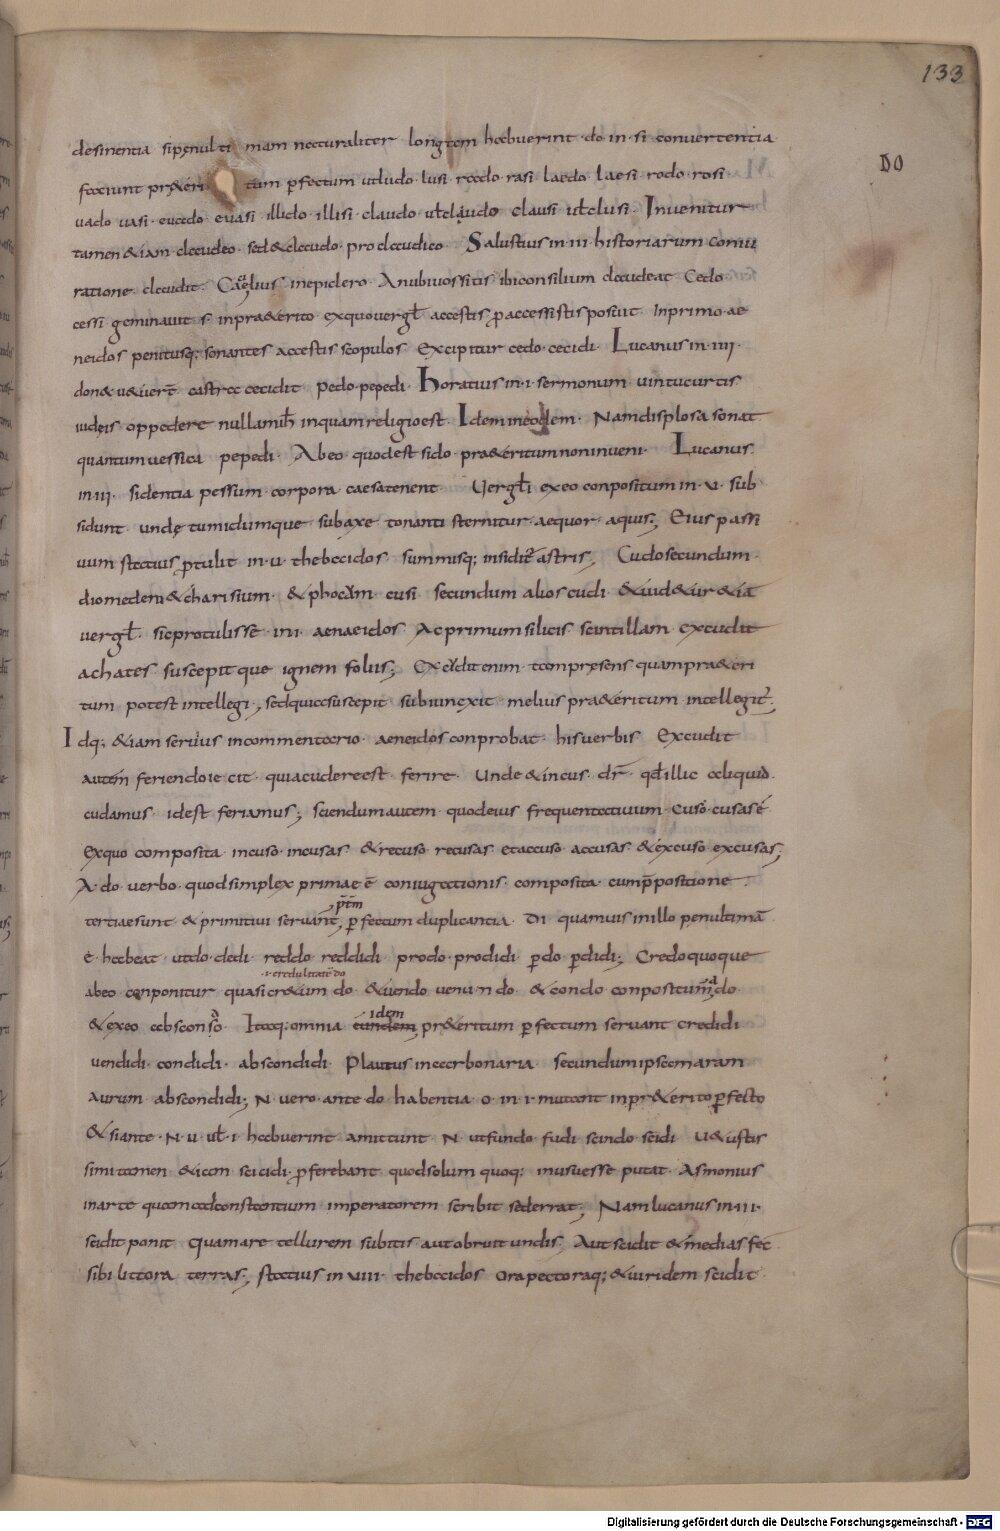 133
DO
desinentia si penulti mam naturaliter longam habuerint · do · in · si · convertentia
faciunt pr&eri tum pfectum ut ludo · lusi · rado · rasi · laedo · laesi · rodo · rosi ·
uado · uasi · euado · euasi · illido · illisi · claudo · ul cludo · clausi · ul clusi · Invenitur
tamen &iam claudeo · sed & claudo · pro claudico · Salustius in · III · historiarum
ratione claudit · Caelius in epidero · A nubi vos sitis ibi consilium claudeat · Cedo
cessi geminauit · s · in pra&erito ex quo vergl accestis p accessistis posuit · In primo · ae
neidos penitusq; sonantes accestis scopulos · Excipitur cedo · cecidi · Lucanus in · IIII ·
castra cecidit · pedo · pepedi · Horatius in · I · sermonum · uin tu curtis
iudęis oppedere nullam inquam religio est · Idem in eodem · Nam displosa sonat
quantum uessica pepedi · Abeo quod est sido · pra&eritum non inveni · Lucanus
in III · sidentia pessum · corpora caesa tenent · Vergli exeo conpositum in · v · sub
sidunt · undę tumidumque sub axe tonanti sternitur aequor aquis; Eius passi
uum statius ptulit · in · vi · thebaidos · summisq; insidit astris; Cudo secundum ·
diomedem & charisium · & phocam · cusi · secundum alios cudi · &
vergl · sic protulisse · in · I · aenaeidos · Ac primum silicis scintillam excudit
achates suscepitque ignem foliis; Excudit enim tam pręsens quam pra&eri
tum potest intellegi; sed quia suscepit subiunexit melius pra&eritum intellegit;
Idq; &iam seruius in commentario aeneidos conprobat · his verbis · Excudit
autem feriendo iecit · quia cudere est ferire · Unde & incus · dr̄ · qd illic aliquid
cudamus · id est feriamus; sciendum autem quod eius frequentatiuum cuso · cusas ē
ex quo composita incuso · incusas · & recuso recusas et accuso accusas & excuso excusas;
A · do · verbo · quod simplex primae ē coniugationis · composita cum ppositione ·
tertiae sunt & primitiui servant, ptm pfectum duplicantia · Di quamuis in illo penultimā
· e · habeat · ut do · dedi reddo reddidi prodo · prodidi pdo pdidi; Credo quoque
i credulitatē do
abeo conponitur quasi cr&um do · & uendo venundo · & condo conpositum a do ·
& exeo abscondo · Itaq; omnia eundem idem pr&eritum pfectum servant credidi
vendidi · condidi · abscondidi · Plautus in carbonaria · secundum ipsam aram
aurum abscondidi; N · vero ante do habentia · o · in · i · mutant in pr&erito pfecto
& si ante · N · u · ul · i · habuerint amittunt · N · ut fundo fudi scindo scidi · U&ustis
simi tamen &iam scicidi · pferebant · quod solum quoq; in usu esse putat · Asmonius
in arte quam ad constantium imperatorem scribit sed errat; Nam lucanus in · III ·
scidit ponit · Quam are tellurem subitis aut obruit undis; Aut scidit & medias fec
sibi littora terras; statius in VIII · thebaidos · Ora pectoraq; & uiridem scidit ·
Digitalisierung gefördert durch die Deutsche Forschungsgemeinschaft - DFG